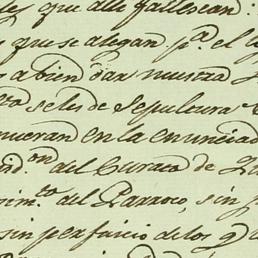 tes que alli fallescan:
y que se alegan pa. el
a bien dar nuestra
seles de Sepultura
mueran en la enunciad
on. del Curato de
im.to del Parroco, sin
sin perjuicio de los q